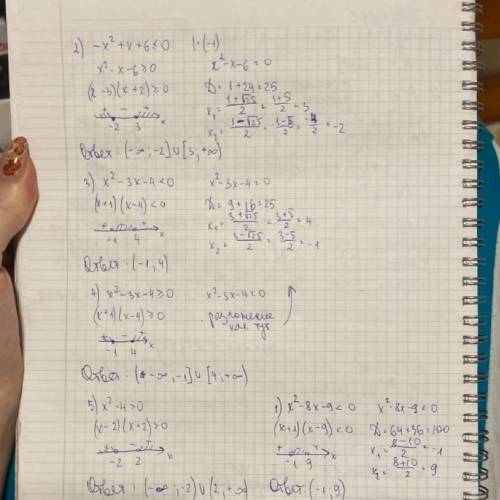 2) -x² + x + 6 ≤ 0 | · (-1)
x² - x - 6 ≥ 0
x² - x - 6 = 0
(x - 3)(x + 2) ≥ 0
D = 1 + 24 = 25
x₁ = (1 + √25)/2 = (1 + 5)/2 = 3
x₂ = (1 - √25)/2 = (1 - 5)/2 = -4/2 = -2
+ - +
-2 3 x
Ответ: (-∞, -2] ∪ [3, +∞)
3) x² - 3x - 4 < 0
x² - 3x - 4 = 0
(x + 1)(x - 4) < 0
D = 9 + 16 = 25
x₁ = (3 + √25)/2 = (3 + 5)/2 = 4
x₂ = (3 - √25)/2 = (3 - 5)/2 = -1
+ - +
-1 4 x
Ответ: (-1, 4)
4) x² - 3x - 4 ≥ 0
x² - 3x - 4 = 0
(x + 1)(x - 4) ≥ 0
разложение
как тут
+ - +
-1 4 x
Ответ: (-∞, -1] ∪ [4, +∞)
5) x² - 4 > 0
(x - 2)(x + 2) > 0
+ - +
-2 2 x
Ответ: (-∞, -2) ∪ (2, +∞)
1) x² - 8x - 9 < 0
x² - 8x - 9 = 0
(x + 1)(x - 9) < 0
D = 64 + 36 = 100
x₁ = (8 - 10)/2 = -1
x₂ = (8 + 10)/2 = 9
+ - +
-1 9 x
Ответ: (-1, 9)